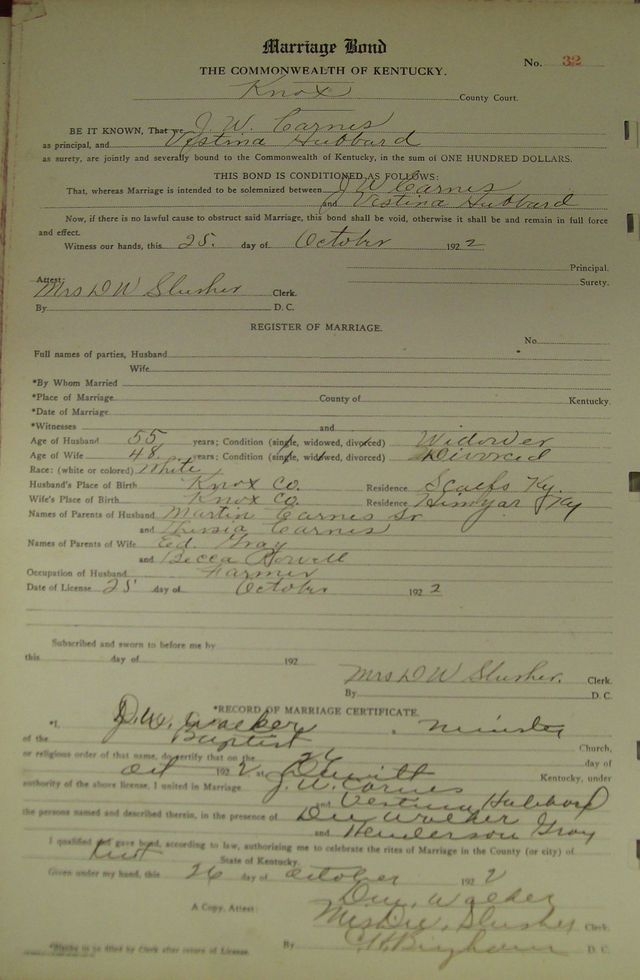 Marriage Bond
No. 32
THE COMMONWEALTH OF KENTUCKY.
Knox County Court.
BE IT KNOWN, That we J. W. Carnes
as principal, and Vestina Hubbard
as surety, are jointly and severally bound to the Commonwealth of Kentucky, in the sum of ONE HUNDRED DOLLARS.
THIS BOND IS CONDITIONED AS FOLLOWS:
That, whereas Marriage is intended to be solemnized between J W Carnes
and Vestina Hubbard
Now, if there is no lawful cause to obstruct said Marriage, this bond shall be void, otherwise it shall be and remain in full force
and effect.
Witness our hands, this 25. day of October 1922
Principal.
Surety.
Attest:
Mrs D W Slusher Clerk.
By D. C.
REGISTER OF MARRIAGE.
No.
Full names of parties, Husband
Wife
*By Whom Married
*Place of Marriage County of Kentucky.
*Date of Marriage
*Witnesses and
Age of Husband 55 years; Condition (single, widowed, divorced) Widower
Age of Wife 48. years; Condition (single, widowed, divorced) Divorced
Race: (white or colored) White
Husband's Place of Birth Knox Co. Residence Scalfs Ky.
Wife's Place of Birth Knox Co. Residence Himyar Ky
Names of Parents of Husband Martin Carnes Sr
and Carnes
Names of Parents of Wife Ed. Gray
and Becca
Occupation of Husband Farmer
Date of License 25 day of October 1922
Subscribed and sworn to before me by
this day of 192
Mrs D W Slusher. Clerk.
By D. C.
*RECORD OF MARRIAGE CERTIFICATE.
*I, Walker, Minister
of the Baptist Church,
or religious order of that name, do certify that on the 26 day of
Oct 1922 at Kentucky, under
authority of the above license, I united in Marriage J. W. Carnes
and Vestina Hubbard
the persons named and described therein, in the presence of Walker
and Henderson Gray
I qualified and gave bond, according to law, authorizing me to celebrate the rites of Marriage in the County (or city) of
State of Kentucky.
Given under my hand, this 26 day of October 1922
Walker
A Copy, Attest: Slusher Clerk
By Bingham D. C.
*Blanks to be filled by Clerk after return of License.